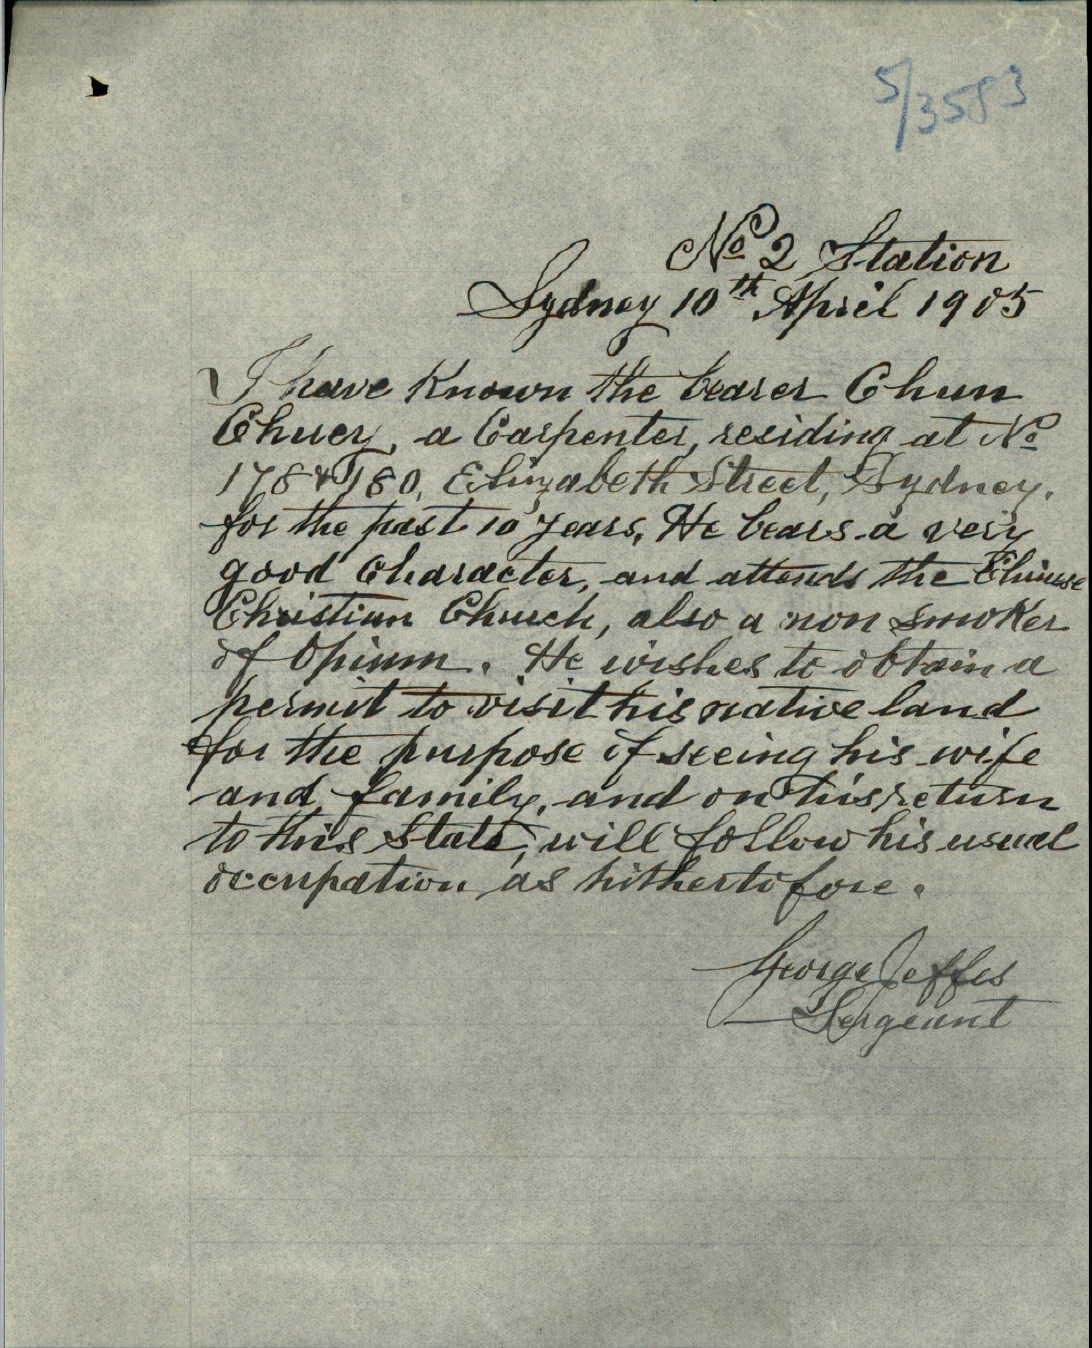 5/3583
No 2 Station
Sydney 10th April 1905
I have Known the bearer Chun
Chuey, a Carpenter, residing at No
178 & 180, Elizabeth Street, Sydney.
for the past 10 years, He bears a very
good Character, and attends the Chinese
Christian Church, also a non smoker
of Opium. He wishes to obtain a
permit to visit his native land
for the purpose of seeing his wife
and family, and on his return
to this State, will follow his usual
occupation as hithertofore.
George Jeffes
Sergeant